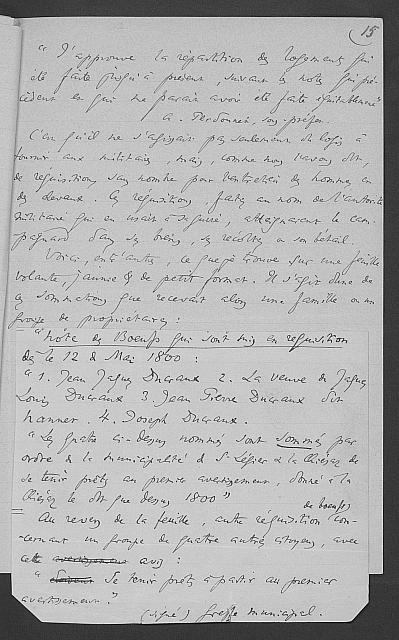 15
" J'approuve la répartition des logements qui
été faite jusqu'à présent, suivant la note qui pré-
cèdent en qui me paraît avoir été faite équitablement "
a. Perdonnet, sous-préfet.
C'en qu'il ne s'agissait pas seulement de logis à
fournir aux militaires, mais, comme nous l'avons dit,
de réquisitions sans nombre pour l'entretien des hommes en
des chevaux. Ces réquisitions, faites au nom de l'autorité
militaire qui en usait à sa guise, atteignaient le cam-
pagnard dans ses biens, ses récoltes ou son bétail.
Voici, entr'autre, ce que je trouve sur une feuille
volante, jaunie & de petit format. Il s'agit d'une de
ces sommations que recevait alors une famille ou un
groupe de propriétaires :
" Note des Boeufs qui sont mis en requisition
dès le 12 de Mai 1800 :
" 1. Jean Jaques Ducraux 2. La veuve de Jaques
Louis Ducraux 3. Jean Pierre Ducraux dit
hanner. 4. Joseph Ducraux.
" Les quatre ci-dessus nommés sont sommés par
ordre de la municipalité de St-Légier & la Chiésaz de
se tenir prêts au premier avertissement, donné à la
Chiésaz le dit que dessus 1800 "
Au revers de la feuille, autre réquisition de boeufs con-
cernant un groupe de quatre autres citoyens, avec
cette avertissement avis :
" Se tenir prêts à partir au premier
avertissement. "
(signé) Greffe municipal.